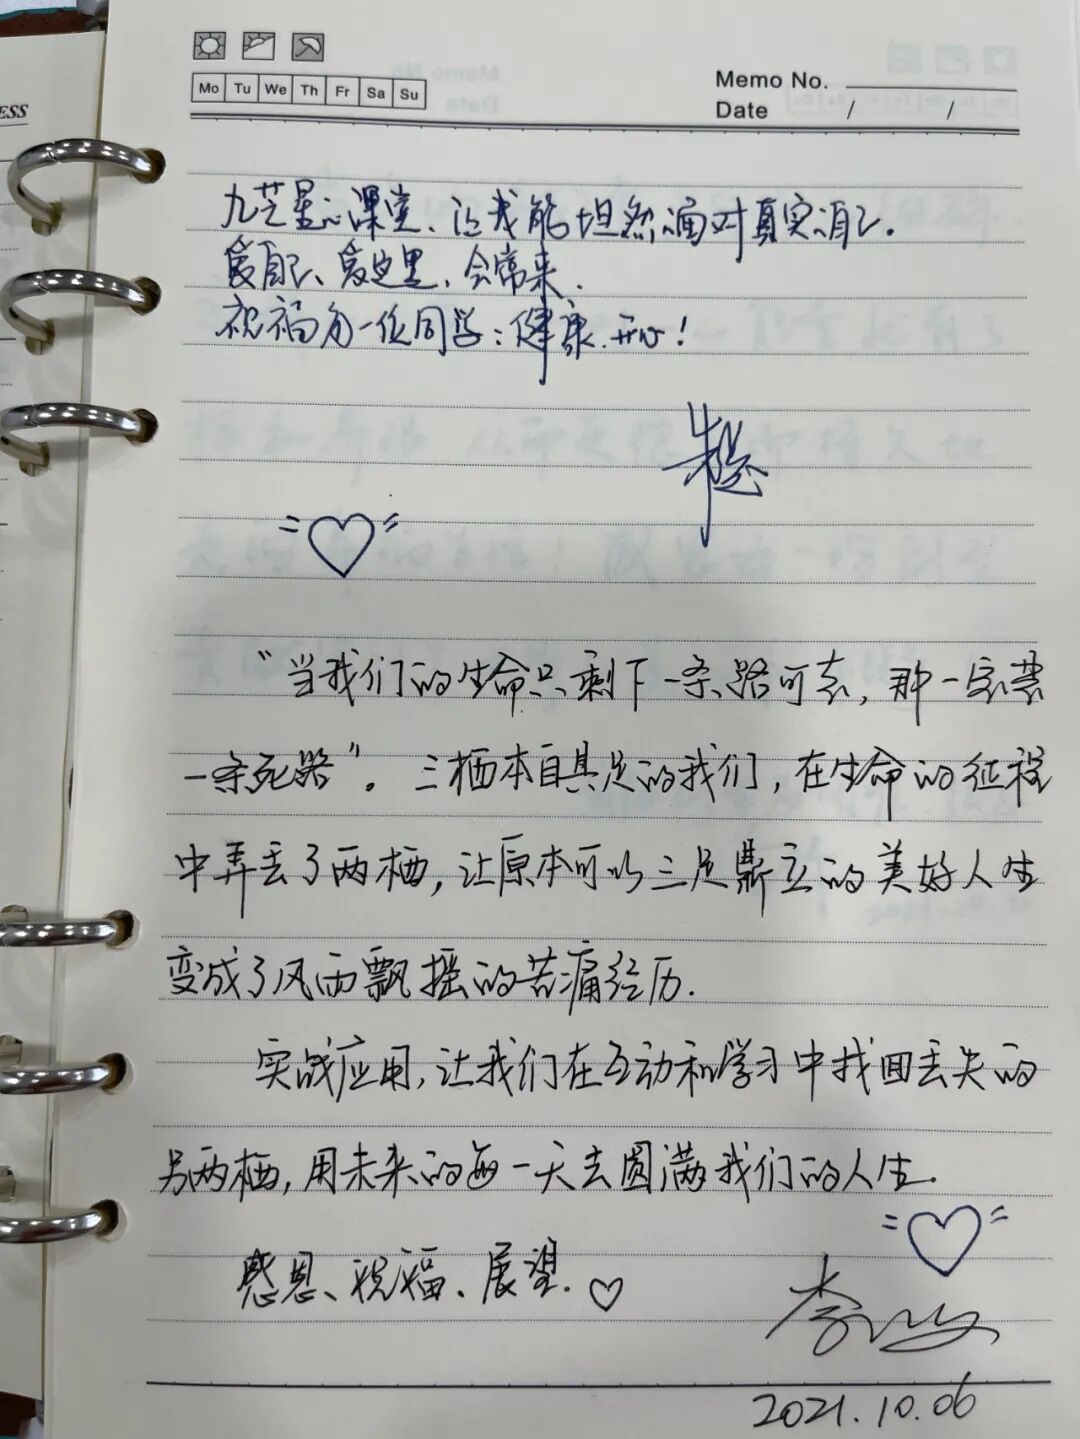 ESS
Mo Tu We Th Fr Sa Su
Memo No.
Date / /
九芝星心课堂、让我能坦然面对真实自己.
爱自己、爱这里、会常来.
祝福每一位同学：健康.开心！
"当我们的生命只剩下一条路可走，那一定是
一条死路"。三栖本自具足的我们，在生命的征程
中弄丢了两栖，让原本可以三足鼎立的美好人生
变成了风雨飘摇的苦痛经历.
实战应用，让我们在互动和学习中找回丢失的
另两栖，用未来的每一天去圆满我们的人生.
感恩、祝福、展望.
2021.10.06